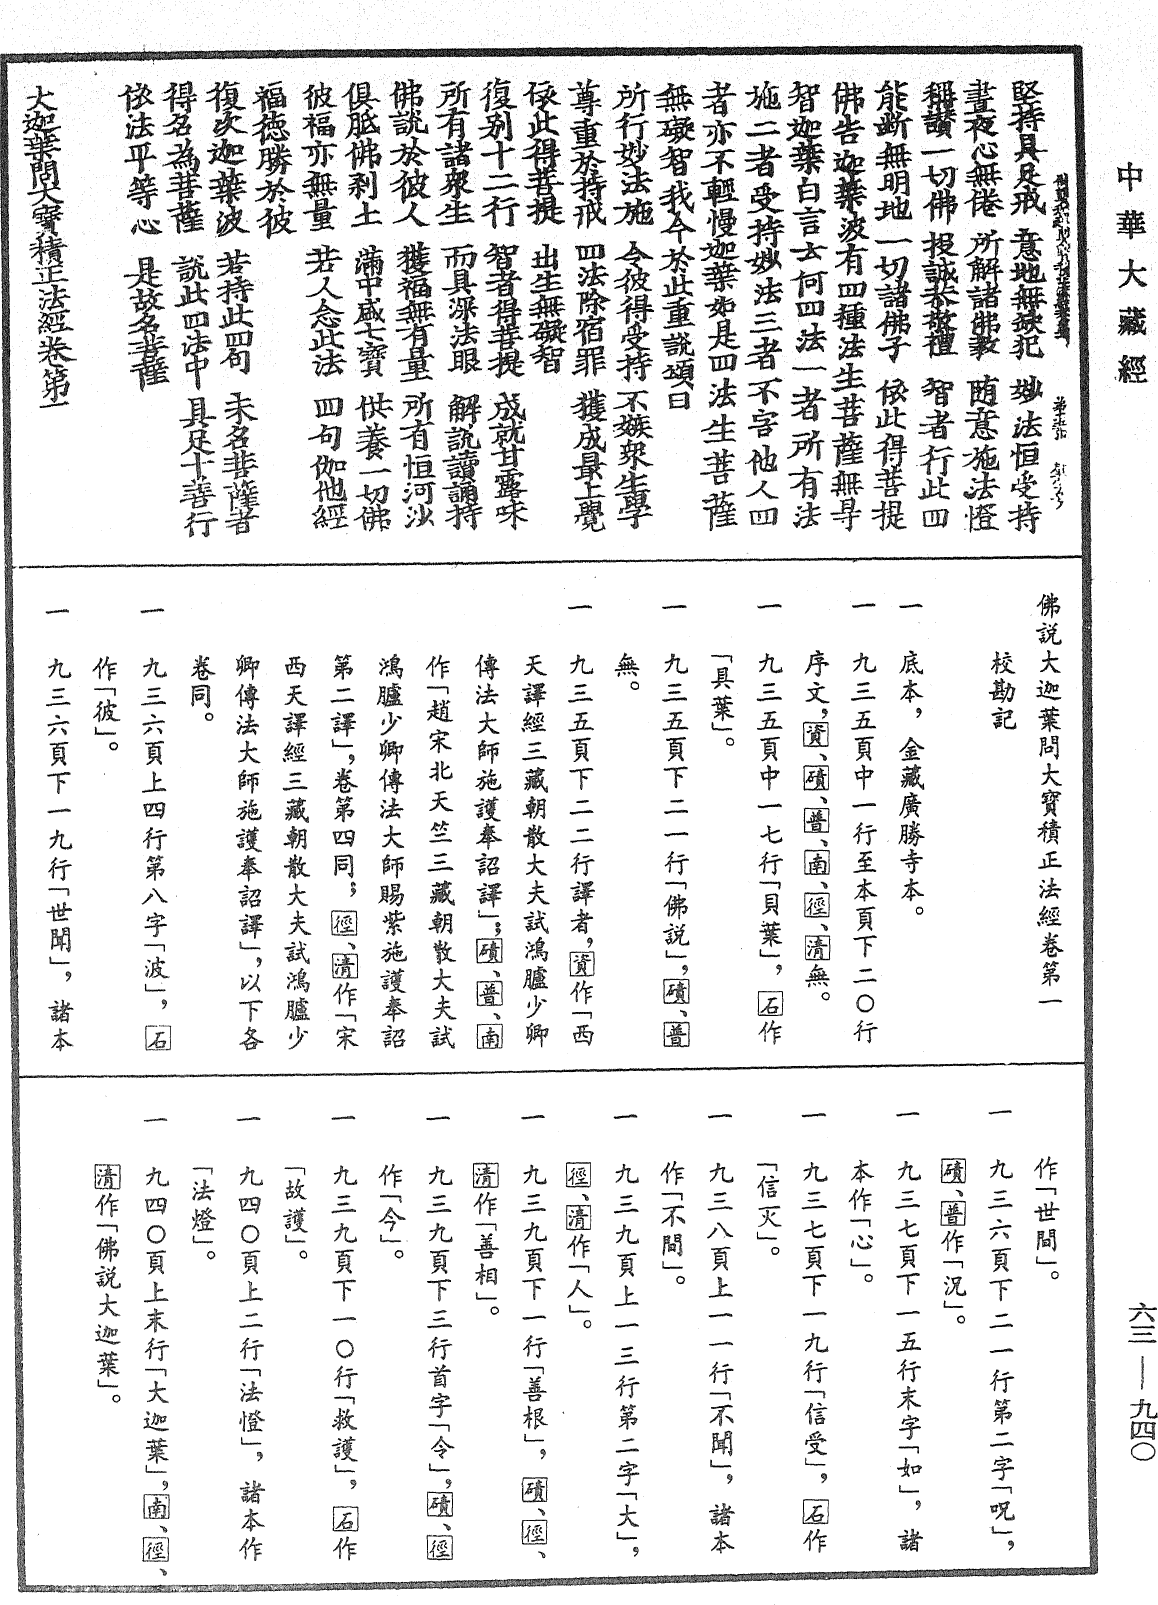 中華大藏經
堅持具足戒　意地無缺犯　妙法恒受持
晝夜心無倦　所解諸佛教　随意施法憕
稱讚一切佛　投誠恭敬禮　智者行此四
能斷無明地　一切諸佛子　依此得菩提
佛告迦葉波有四種法生菩薩無㝵
智迦葉白言云何四法一者所有法
施二者受持妙法三者不害他人四
者亦不輕慢迦葉如是四法生菩薩
無礙智我今於此重說頌曰
所行妙法施　令彼得受持　不嫉衆生學
尊重於持戒　四法除宿罪　獲成最上覺
依此得菩提　出生無礙智
復別十二行　智者得菩提　成就甘露味
所有諸衆生　而具深法眼　解說讀誦持
佛說於彼人　獲福無有量　所有恒河沙
俱胝佛刹土　滿中盛七寶　供養一切佛
彼福亦無量　若人念此法　四句伽他經
福德勝於彼
復次迦葉波　若持此四句　未名菩薩者
得名為菩薩　說此四法中　具足十善行
依法平等心　是故名菩薩
大迦葉問大寶積正法經卷第一
佛説大迦葉問大寶積正法經卷第一
校勘記
一　底本，金藏廣勝寺本。
一　九三五頁中一行至本頁下二〇行
序文，資、磧、普、南、徑、清無。
一　九三五頁中一七行「貝葉」，石作
「具葉」。
一　九三五頁下二一行「佛説」，磧、普
無。
一　九三五頁下二二行譯者，資作「西
天譯經三藏朝散大夫試鴻臚少卿
傳法大師施護奉詔譯」；磧、普、南
作「趙宋北天竺三藏朝散大夫試
鴻臚少卿傳法大師賜紫施護奉詔
第二譯」，卷第四同；徑、清作「宋
西天譯經三藏朝散大夫試鴻臚少
卿傳法大師施護奉詔譯」，以下各
卷同。
一　九三六頁上四行第八字「波」，石
作「彼」。
一　九三六頁下一九行「世聞」，諸本
作「世間」。
一　九三六頁下二一行第二字「呪」，
磧、普作「況」。
一　九三七頁下一五行末字「如」，諸
本作「心」。
一　九三七頁下一九行「信受」，石作
「信灭」。
一　九三八頁上一一行「不聞」，諸本
作「不間」。
一　九三九頁上一三行第二字「大」，
徑、清作「人」。
一　九三九頁下一行「善根」，磧、徑、
清作「善相」。
一　九三九頁下三行首字「令」，磧、徑
作「今」。
一　九三九頁下一〇行「救護」，石作
「故護」。
一　九四〇頁上二行「法憕」，諸本作
「法燈」。
一　九四〇頁上末行「大迦葉」，南、徑、
清作「佛説大迦葉」。
六三—九四〇